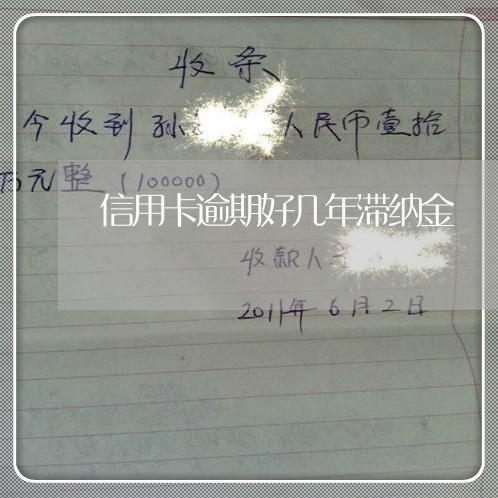 收条
今收到孙 人民币壹拾
万元整（100000）
信用卡逾期好几年滞纳金
收款人
2011年6月2日